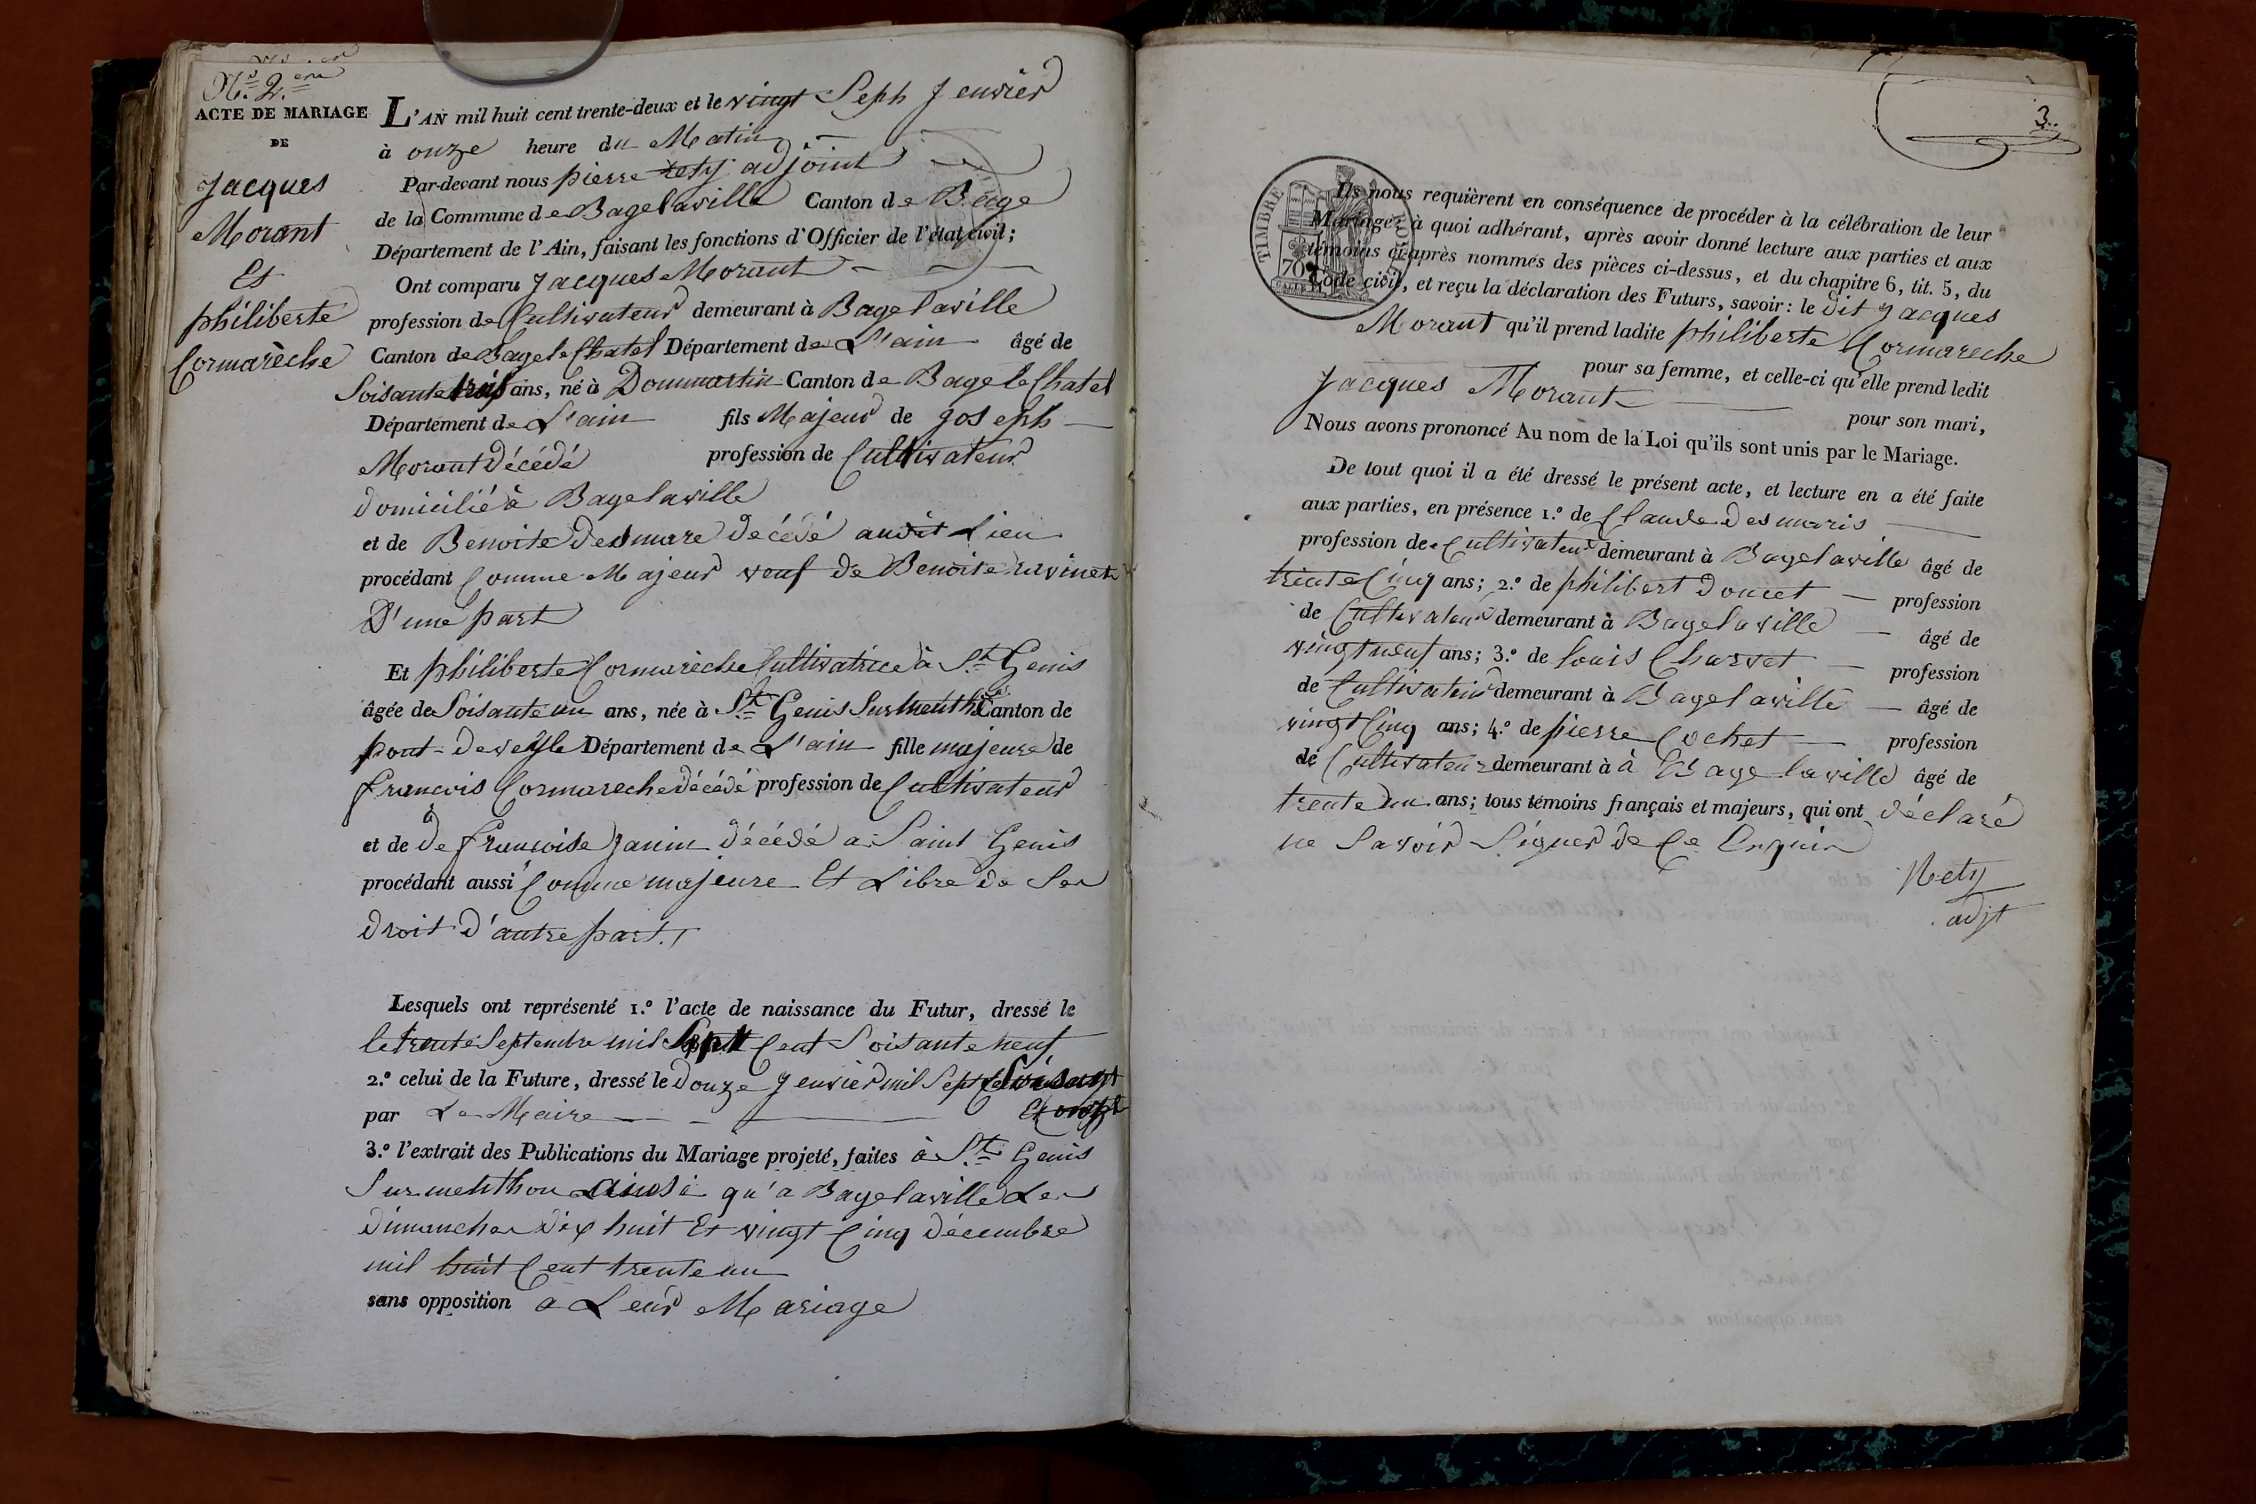 N.º 2.eme
ACTE DE MARIAGE
DE
Jacques
Morant
Et
philiberte
Cormarèche
L'AN mil huit cent trente-deux et le vingt Seph Jenvier
à onze heure du Matin
Par-devant nous pierre rety adjoint
de la Commune de Bagelaville Canton de Bâge
Département de l'Ain, faisant les fonctions d'Officier de l'état civil;
Ont comparu Jacques Morant
profession de Cultivateur demeurant à Bagelaville
Canton de Bage le Chatel Département de L'ain âgé de
Soisante trois ans, né à Dommartin Canton de Bage le Chatel
Département de L'ain fils Majeur de Joseph
Morant décédé profession de Cultivateur
domicilié à Bagelaville
et de Benoite Desmare décédé audit Lieu
procédant Comme Majeur veuf de Benoite ravinet
D'une part
Et philiberte Cormarèche Cultivatrice à St Genis
âgée de Soisante un ans, née à St Genis Sur Menthon Canton de
pont-de veyle Département de L'ain fille majeure de
francois Cormareche décédé profession de Cultivateur
et de de francoise Janin décédé a Saint Genis
procédant aussi Comme majeure Et Libre de Ses
droit d'autre part.
Lesquels ont représenté 1.º l'acte de naissance du Futur, dressé le
le trente Septembre mil Sept Cent Soisante neuf
2.º celui de la Future, dressé le douze Jenvier mil Sept Cent Soisante
par Le Maire Et onze
3.º l'extrait des Publications du Mariage projeté, faites à St Genis
Sur menthon ainsi qu'a Bagelaville Les
dimanches dix huit Et vingt Cinq décembre
mil huit Cent trente un
sans opposition a Leur Mariage
3.
TIMBRE ROYAL
70
Ils nous requièrent en conséquence de procéder à la célébration de leur
Mariage; à quoi adhérant, après avoir donné lecture aux parties et aux
témoins ci-après nommés des pièces ci-dessus, et du chapitre 6, tit. 5, du
Code civil, et reçu la déclaration des Futurs, savoir: le dit Jacques
Morant qu'il prend ladite philiberte Cormareche
pour sa femme, et celle-ci qu'elle prend ledit
Jacques Morant
pour son mari,
Nous avons prononcé Au nom de la Loi qu'ils sont unis par le Mariage.
De tout quoi il a été dressé le présent acte, et lecture en a été faite
aux parties, en présence 1.º de Claude Desmaris
profession de Cultivateur demeurant à Bagelaville âgé de
trente Cinq ans; 2.º de philibert Doucet profession
de Cultivateur demeurant à Bagelaville âgé de
vingt neuf ans; 3.º de louis Charvet profession
de Cultivateur demeurant à Bagelaville âgé de
vingt Cinq ans; 4.º de pierre Cochet profession
de Cultivateur demeurant à à Bagelaville âgé de
trente un ans; tous témoins français et majeurs, qui ont déclaré
ne Savoir Signer de Ce Enquis
Rety
adjt